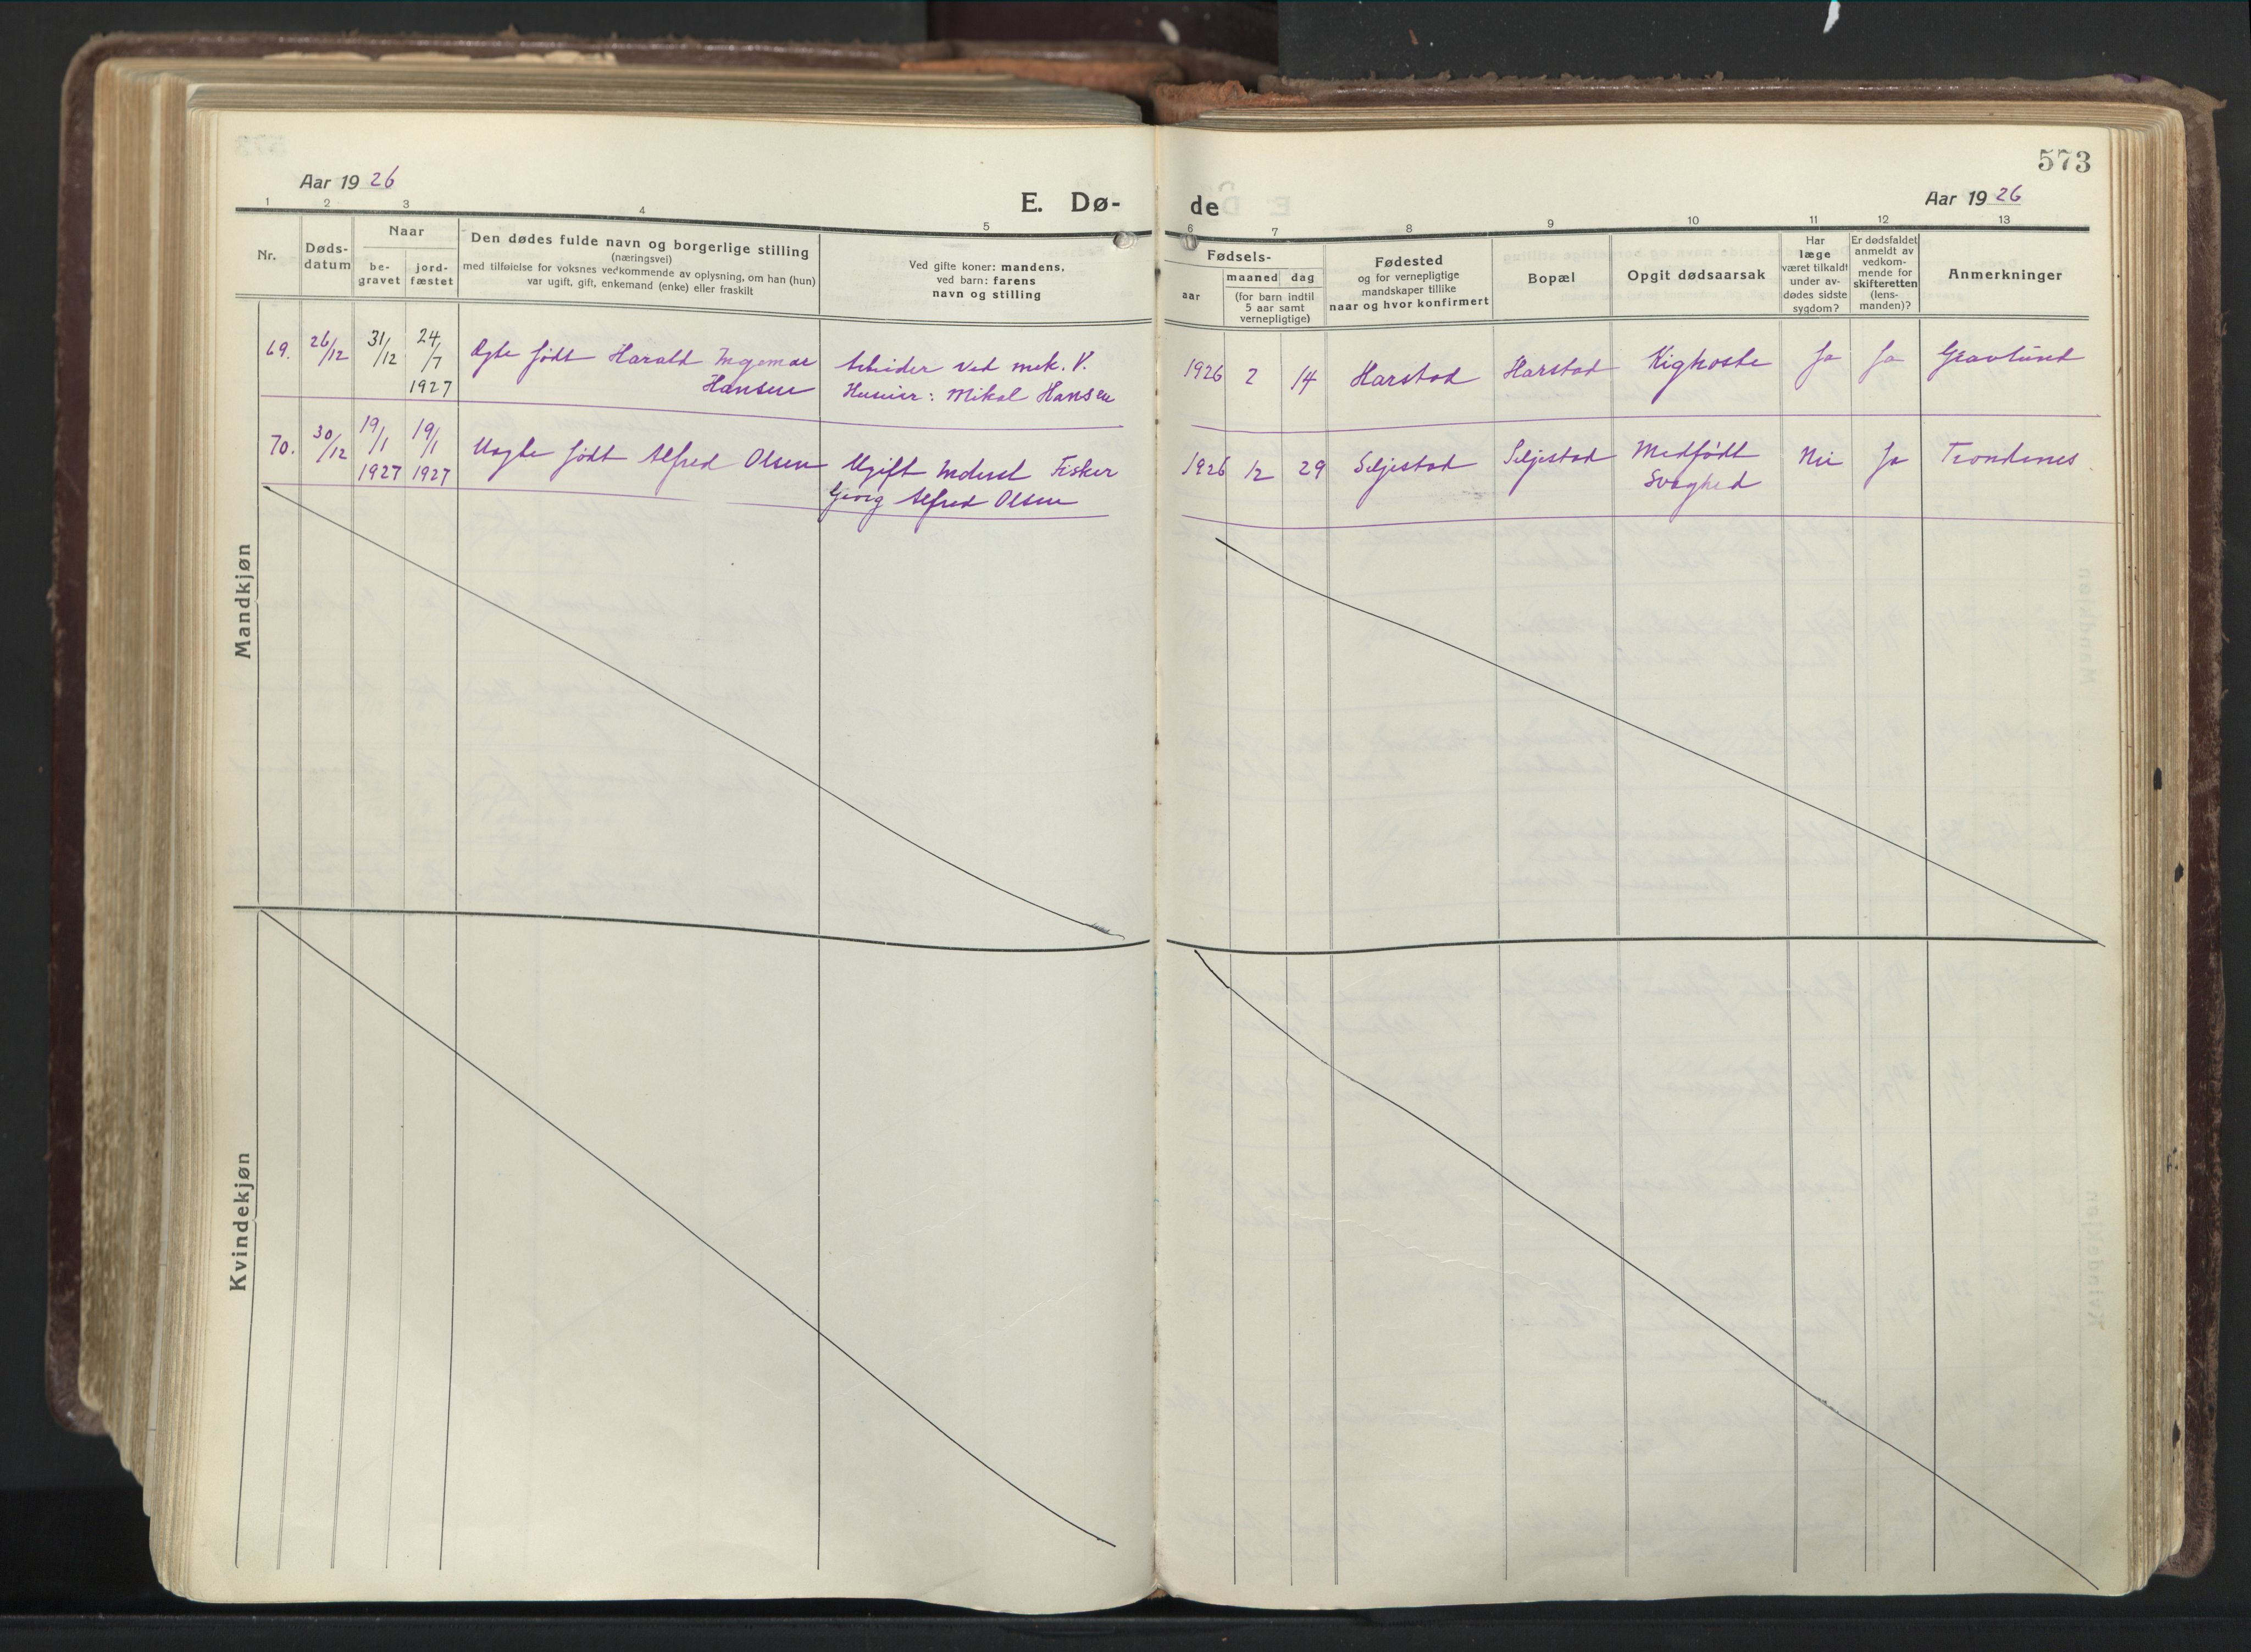 573
Aar 19 26
E. Dø-
de
Aar 19 26
1 2 3 4 5
6 7 8 9 10 11 12 13
Nr.
Døds-
datum
Naar
be-
gravet
jord-
fæstet
Den dødes fulde navn og borgerlige stilling
(næringsvei)
med tilføielse for voksnes vedkommende av oplysning, om han (hun)
var ugift, gift, enkemand (enke) eller fraskilt
Ved gifte koner: mandens,
ved barn: farens
navn og stilling
Fødsels-
aar
maaned dag
(for barn indtil
5 aar samt
vernepligtige)
Fødested
og for vernepligtige
mandskaper tillike
naar og hvor konfirmert
Bopæl
Opgit dødsaarsak
Har
læge
været tilkaldt
under av-
dødes sidste
sygdom?
Er dødsfaldet
anmeldt av
vedkom-
mende for
skifteretten
(lens-
manden)?
Anmerkninger
Mandkjøn
69. 26/12 31/12 24/7 1927
Ægte født Harald Ingemar
Hansen
Arbeider ved mek. V.
Huseier: Mikal Hansen
1926 2 14 Harstad Harstad Kighoste Ja Ja Gravlund
70. 30/12 19/1 1927 19/1 1927
Uægte født Alfred Olsen
Ugift Inderst Fisker
Georg Alfred Olsen
1926 12 29 Seljestad Seljestad Medfødt
Svaghed
Nei Ja Trondenes.
Kvindekjøn